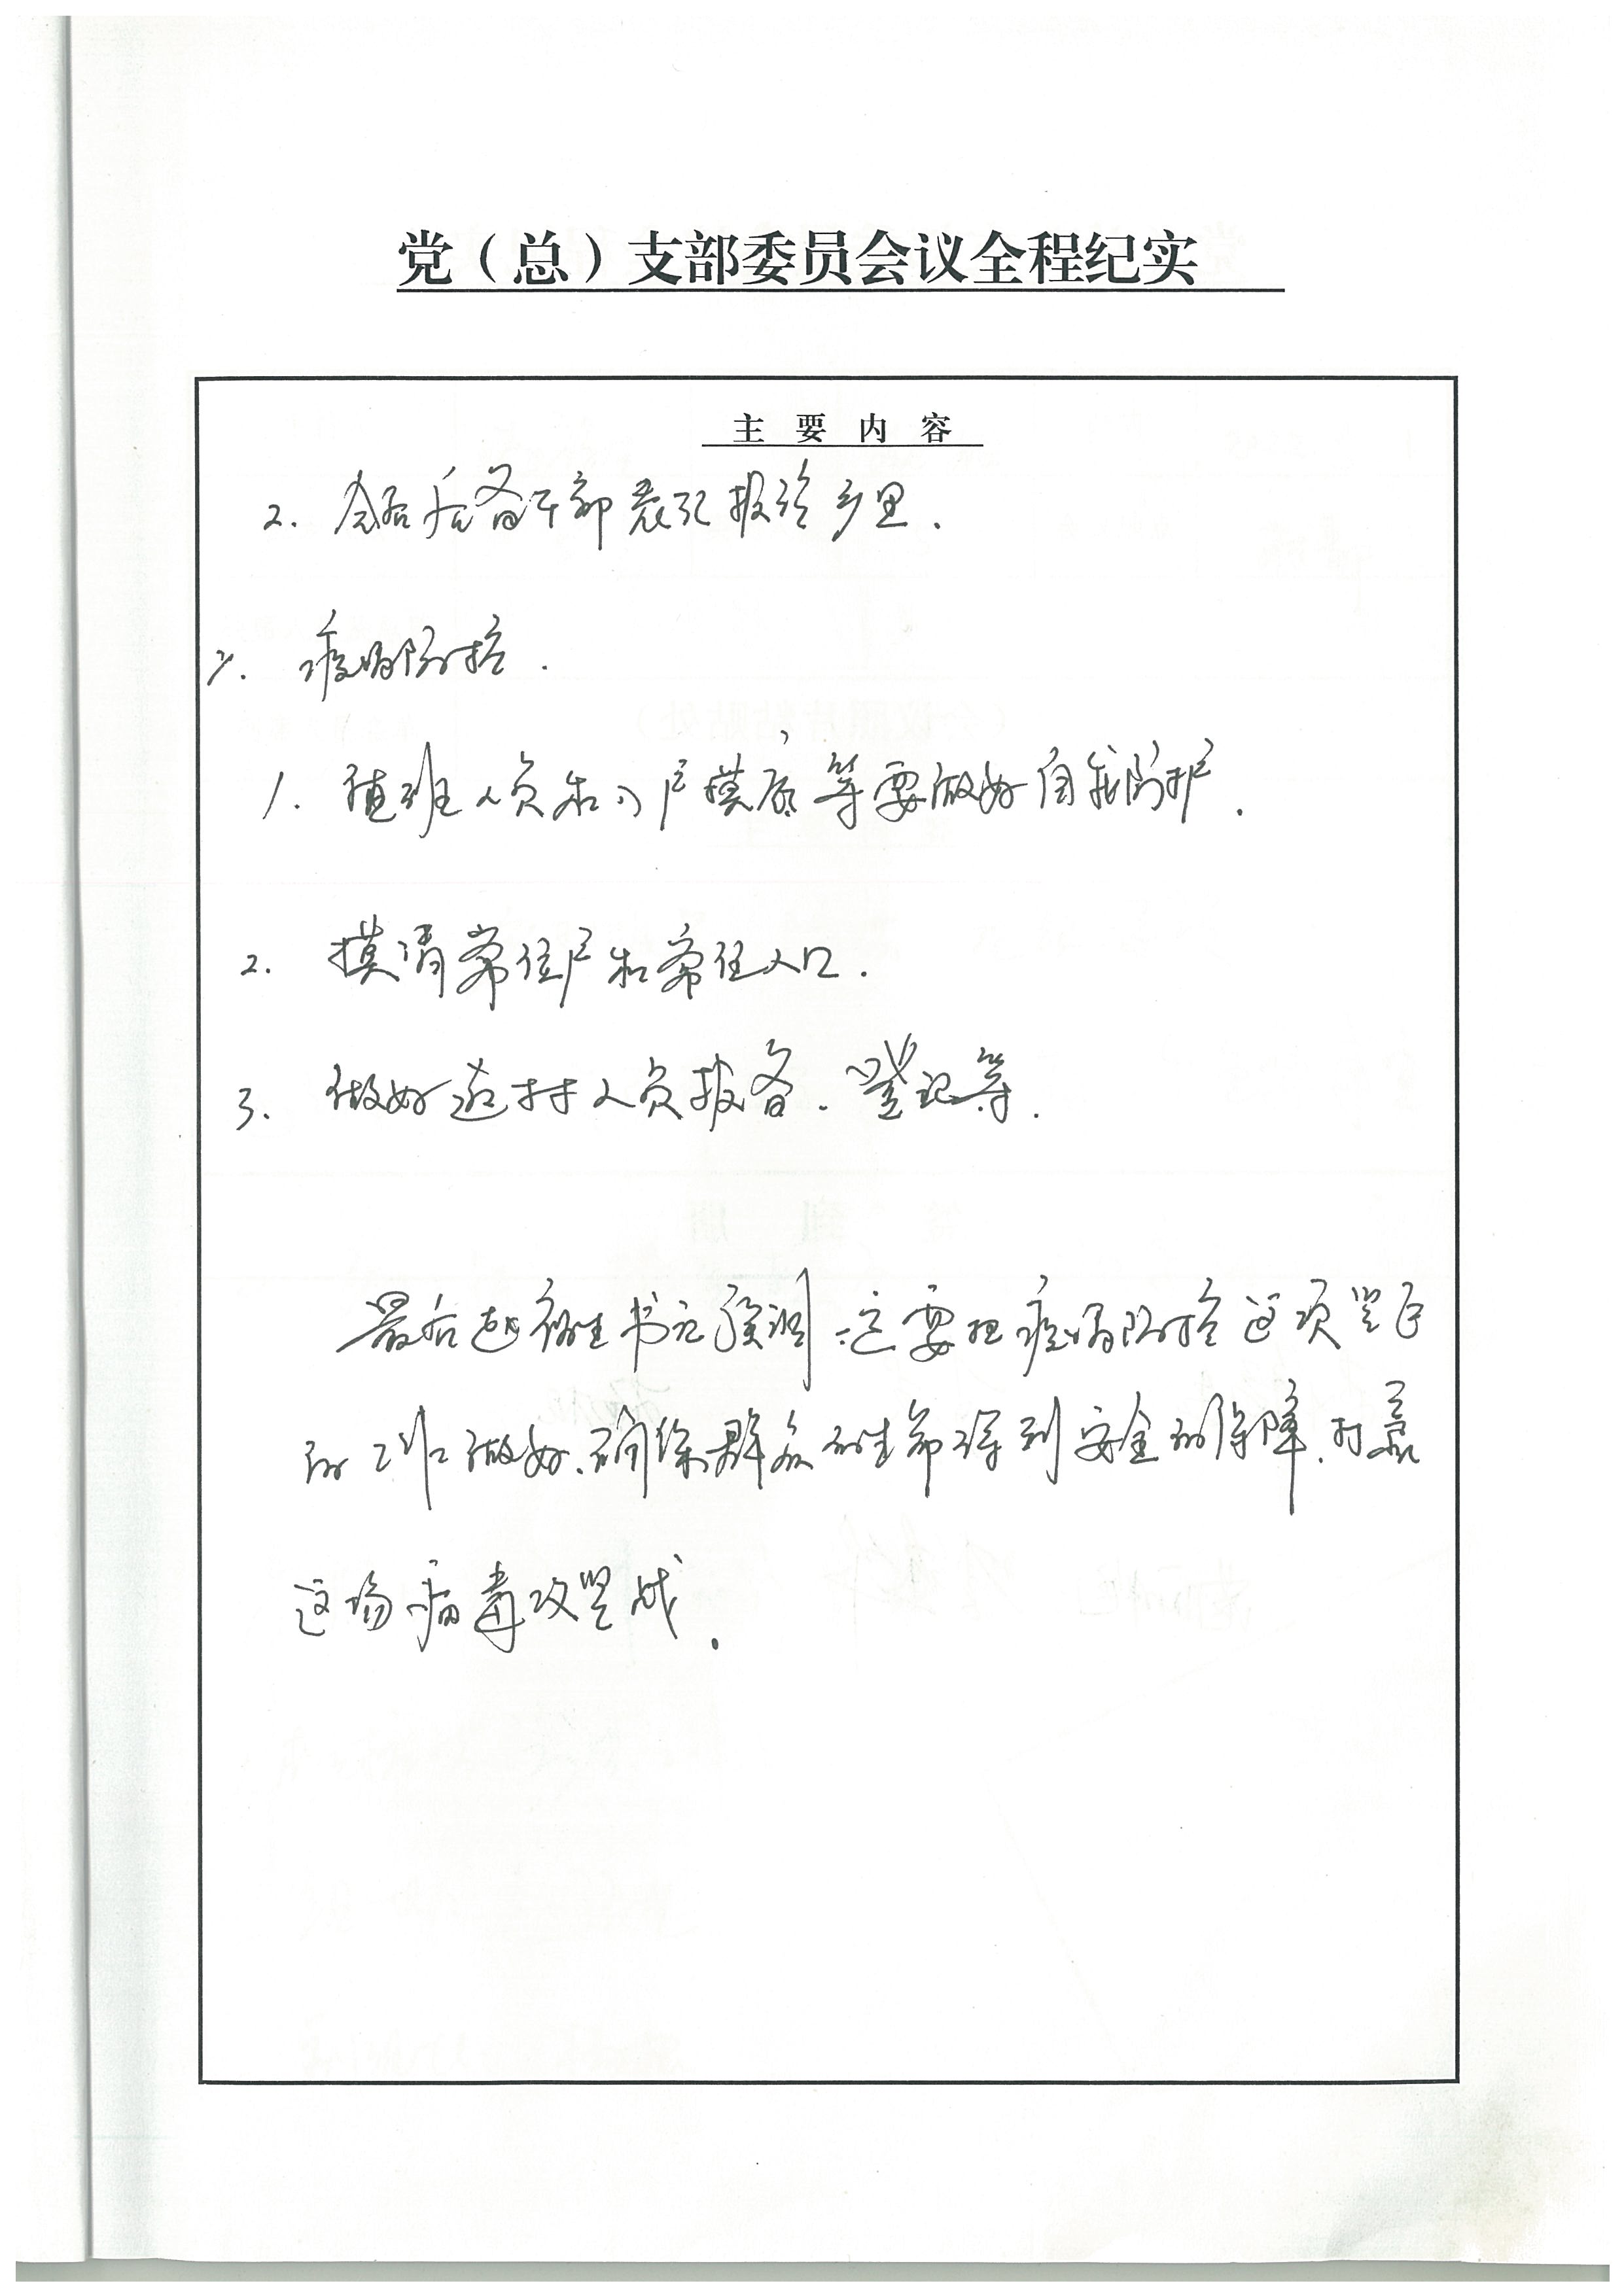 党（总）支部委员会议全程纪实
主要内容
2. 会后后备干部表现报给乡里.
二. 疫情防控.
1. 值班人员和入户摸底等要做好自我防护.
2. 摸清常住户和常住人口.
3. 做好返村人员报备、登记等.
最后赵书记强调:一定要把疫情防控这项坚巨
的工作做好、确保群众的生命得到安全的保障、打赢
这场病毒攻坚战.